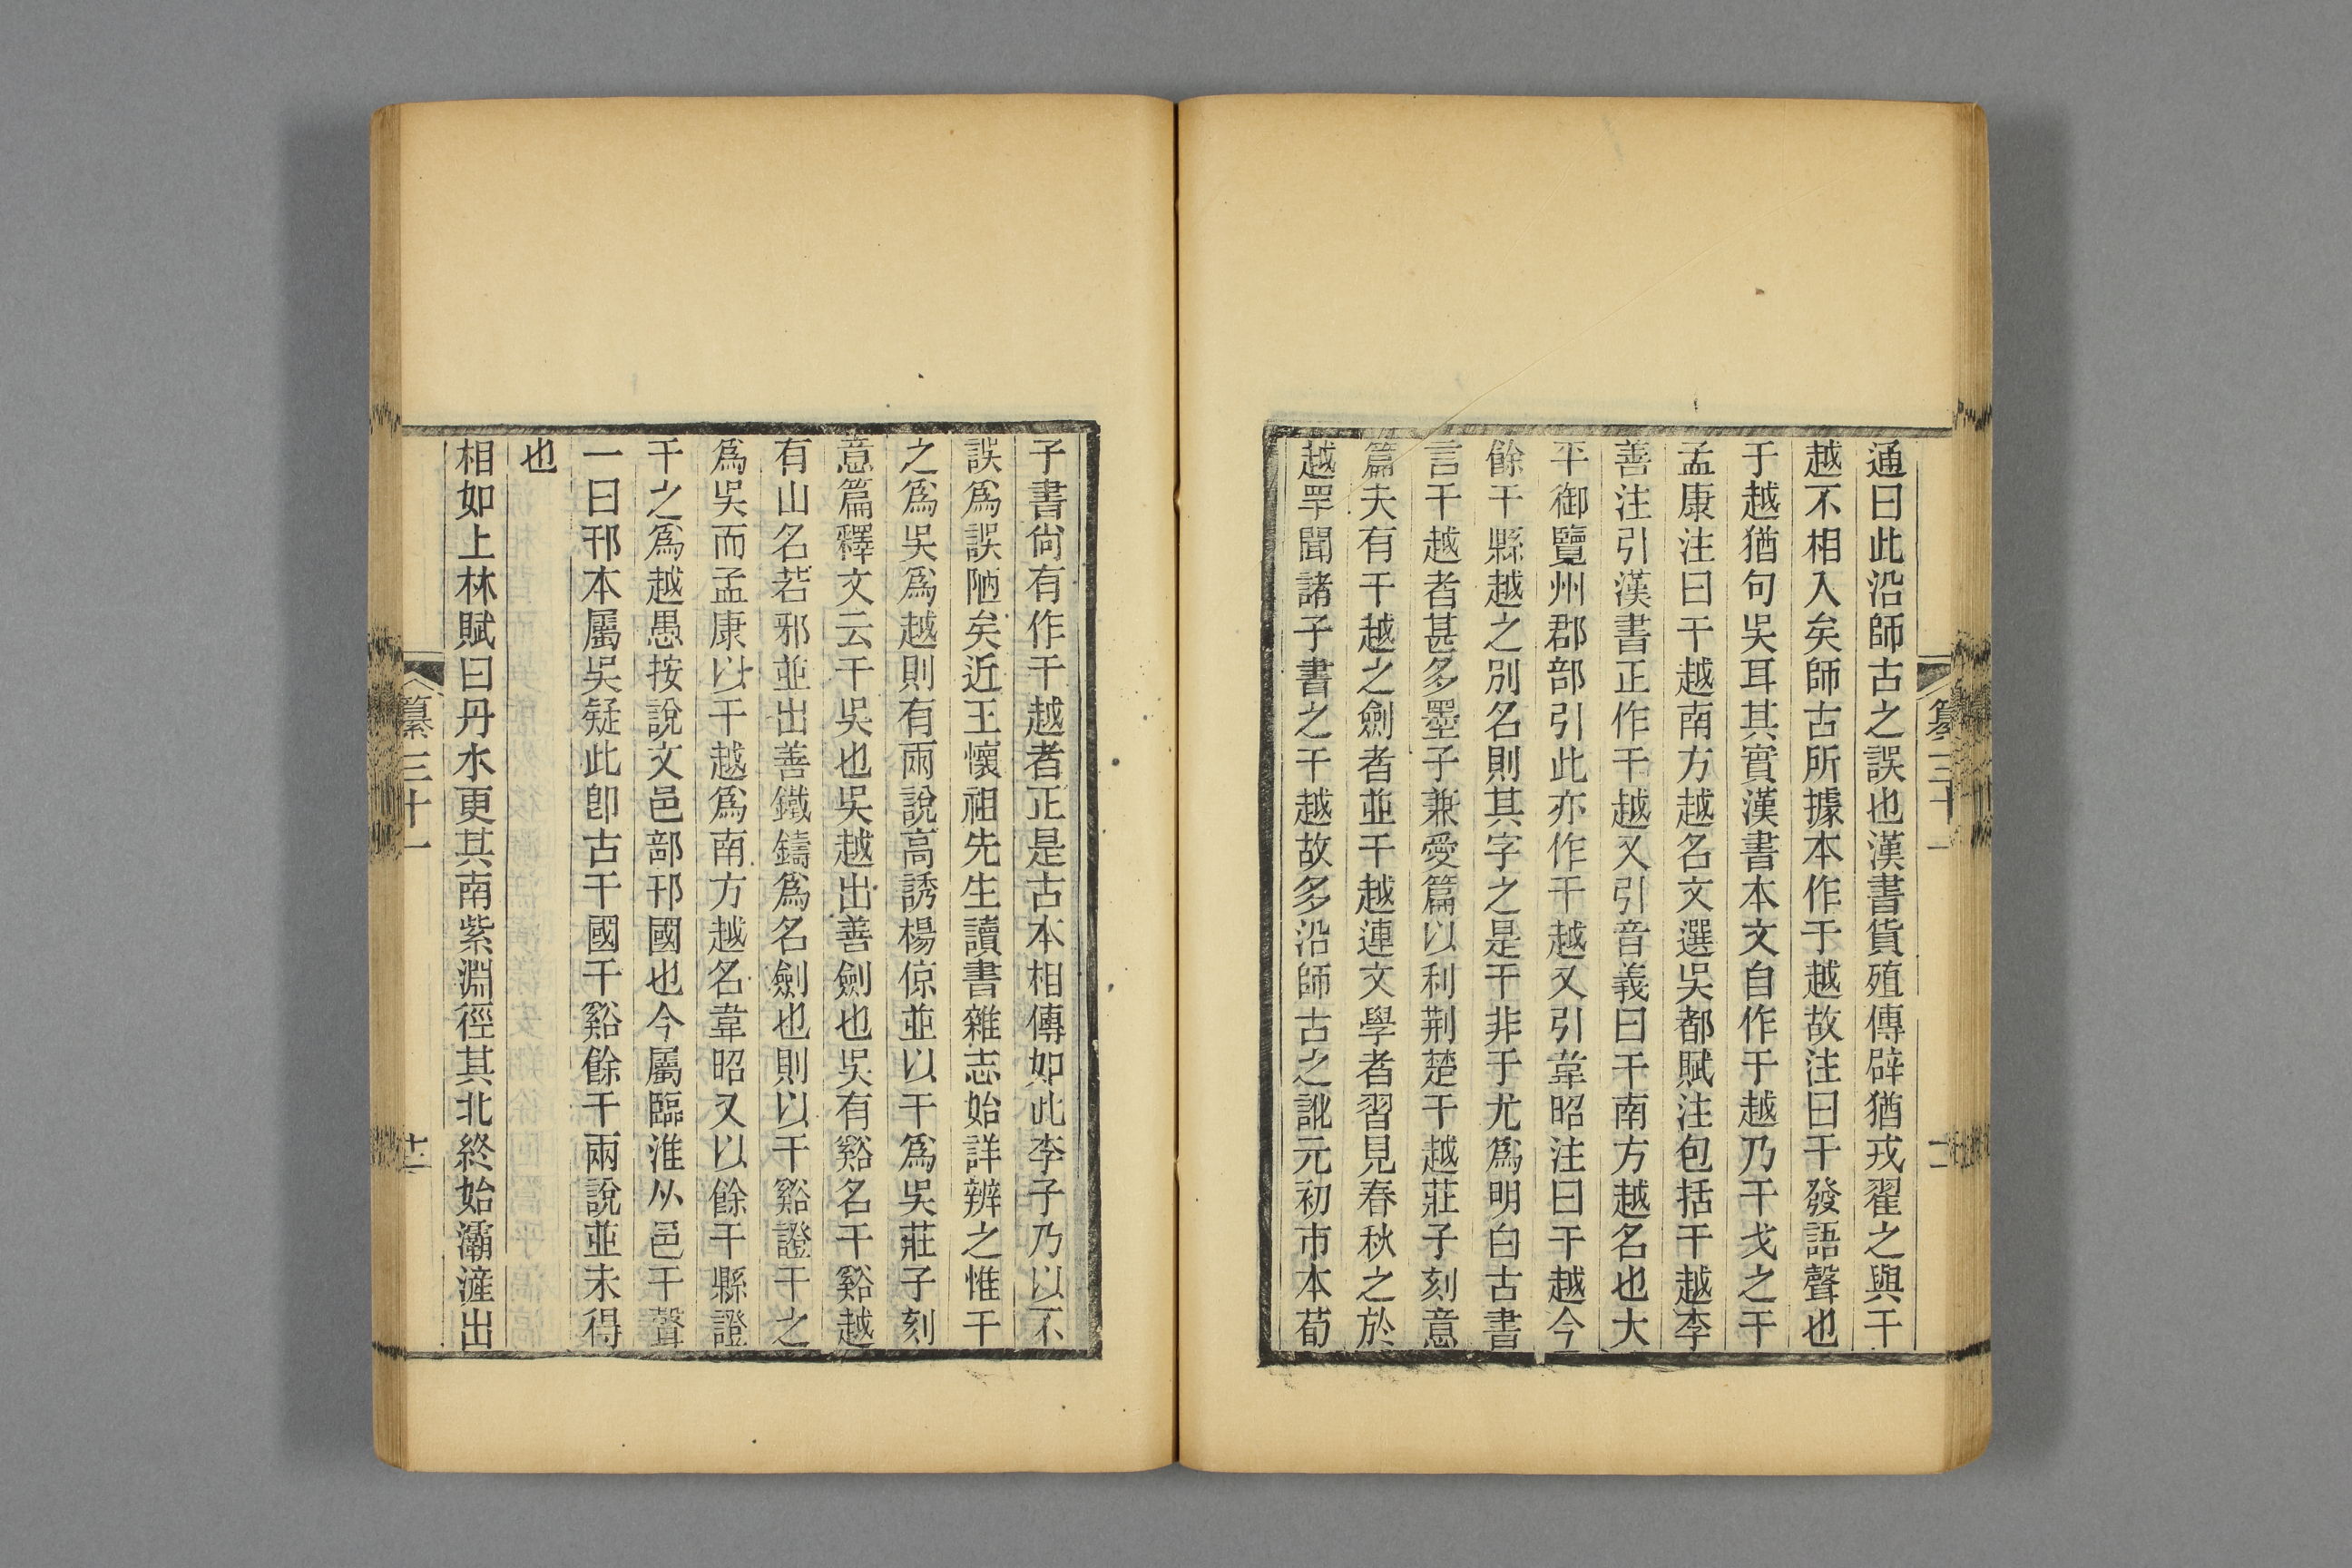 通曰此沿師古之誤也漢書貨殖傳辟猶戎翟之與干
越不相入矣師古所據本作于越故注曰干發語聲也
于越猶句吳耳其實漢書本文自作于越乃干戈之干
孟康注曰干越南方越名文選吳都賦注包括干越李
善注引漢書正作干越又引音義曰干南方越名也大
平御覽州郡部引此亦作干越又引韋昭注曰干越今
餘干縣越之別名則其字之是干非于尤爲明白古書
言干越者甚多墨子兼愛篇以利荆楚干越莊子刻意
篇夫有干越之劍者並干越連文學者習見春秋之於
越罕聞諸子書之干越故多沿師古之訛元初市本荀
纂三十一
十一
子書尙有作干越者正是古本相傳如此李子乃以不
誤爲誤陋矣近王懷祖先生讀書雜志始詳辨之惟干
之爲吳爲越則有兩說高誘楊倞並以干爲吳莊子刻
意篇釋文云干吳也吳越出善劍也吳有谿名干谿越
有山名若邪並出善鐵鑄爲名劍也則以干谿證干之
爲吳而孟康以干越爲南方越名韋昭又以餘干縣證
干之爲越愚按說文邑部邗國也今屬臨淮从邑干聲
一曰邗本屬吳疑此卽古干國干谿餘干兩說並未得
也
相如上林賦曰丹水更其南紫淵徑其北終始灞滻出
纂三十一